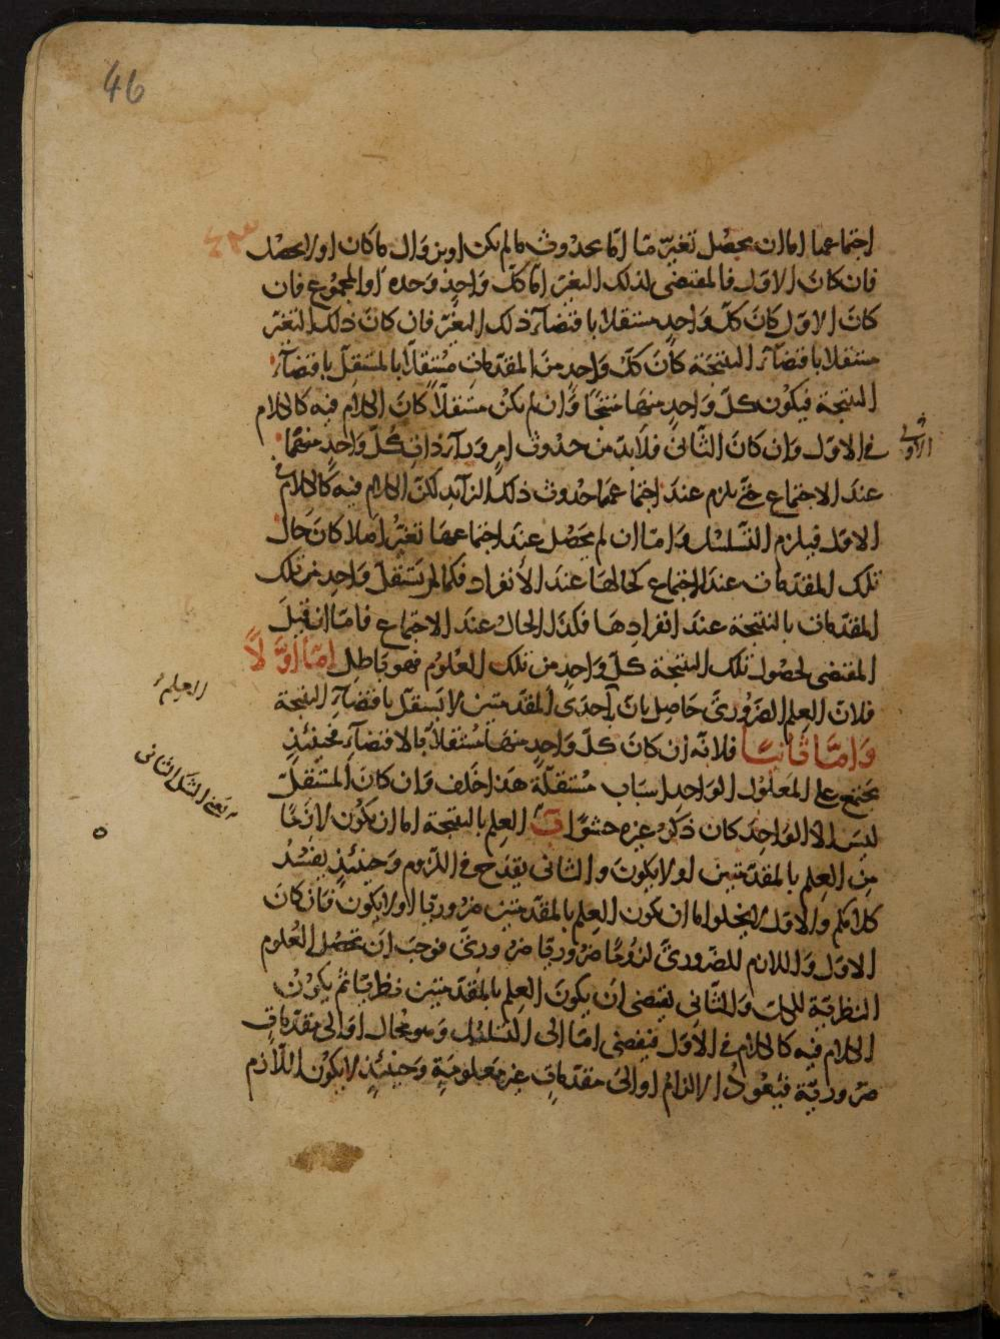 46
اجتماعهما اما ان يحصل تغيّر مّا امّا بحدوث ما لم يكن او بزوال ما كان او لا يحصل
فان كان الاوّل فالمقتضى لذلك التغيّر امّا كلّ واحد وحده او المجموع فان
كان الاوّل كان كلّ واحد مستقلا باقتضاء ذلك التغيّر فان كان ذلك التغيّر
مستقلا باقتضاء النتيجة كان كلّ واحد من المقدمات مستقلّا بالمستقلّ باقتضاء
النتيجة فيكون كلّ واحد منها منتجًا وان لم يكن مستقلّا كان الكلام فيه كالكلام
في الاوّل وان كان الثّانى فلابدّ من حدوث امر وراء ذات كلّ واحد منهما
الاولى
عند الاجتماع حتّى يلزم عند اجتماعهما حدوث ذلك الزايد لكنّ الكلام فيه كالكلام في
الاوّل فيلزم التّسلسل وامّا ان لم يحصل عند اجتماعهما تغيّر اصلا كان حال
تلك المقدمات عند الاجتماع كحالها عند الانفراد فكما لم يستقلّ واحد من تلك
المقدمات بالنتيجة عند انفرادها فكذا الحال عند الاجتماع فامّا ان قيل
المقتضى لحصول تلك النتيجة كلّ واحد من تلك العلوم فهو باطل امّا اوّلًا
فلان العلم الضرورىّ حاصل بان احدى المقدمتين لا يستقلّ باقتضاء النتيجة
العلم
وامّا ثانيًا فلانّه ان كان كلّ واحد منهما مستقلّا بالاقتضاء فحينئذ
يجتمع على المعلول الواحد اسباب مستقلّة هذا خلف وان كان المستقلّ
يعنى الشكل الثانى
ليس الا الواحد كان ذكر غيره حشوًا العلم بالنتيجة اما ان يكون لازمًا
من العلم بالمقدمتين او لا يكون والثانى يقدح في اللزوم وحينئذ يفسد
كلامكم والاوّل لا يخلوا اما ان يكون العلم بالمقدمتين ضروريا او لا يكون فان كان
الاوّل واللازم للضرورىّ لزومًا ضروريًا ضرورىّ فوجب ان تحصل العلوم
النظريّة للكلّ والثّانى يقتضى ان يكون العلم بالمقدمتين نظريًا ثم يكون
الكلام فيه كالكلام في الاول فيفضى امّا الى التسلسل وهو محال او الى مقدمات
ضروريّة فيعود الالزام او الى مقدمات غير معلومة وحينئذ لا يكون اللازم